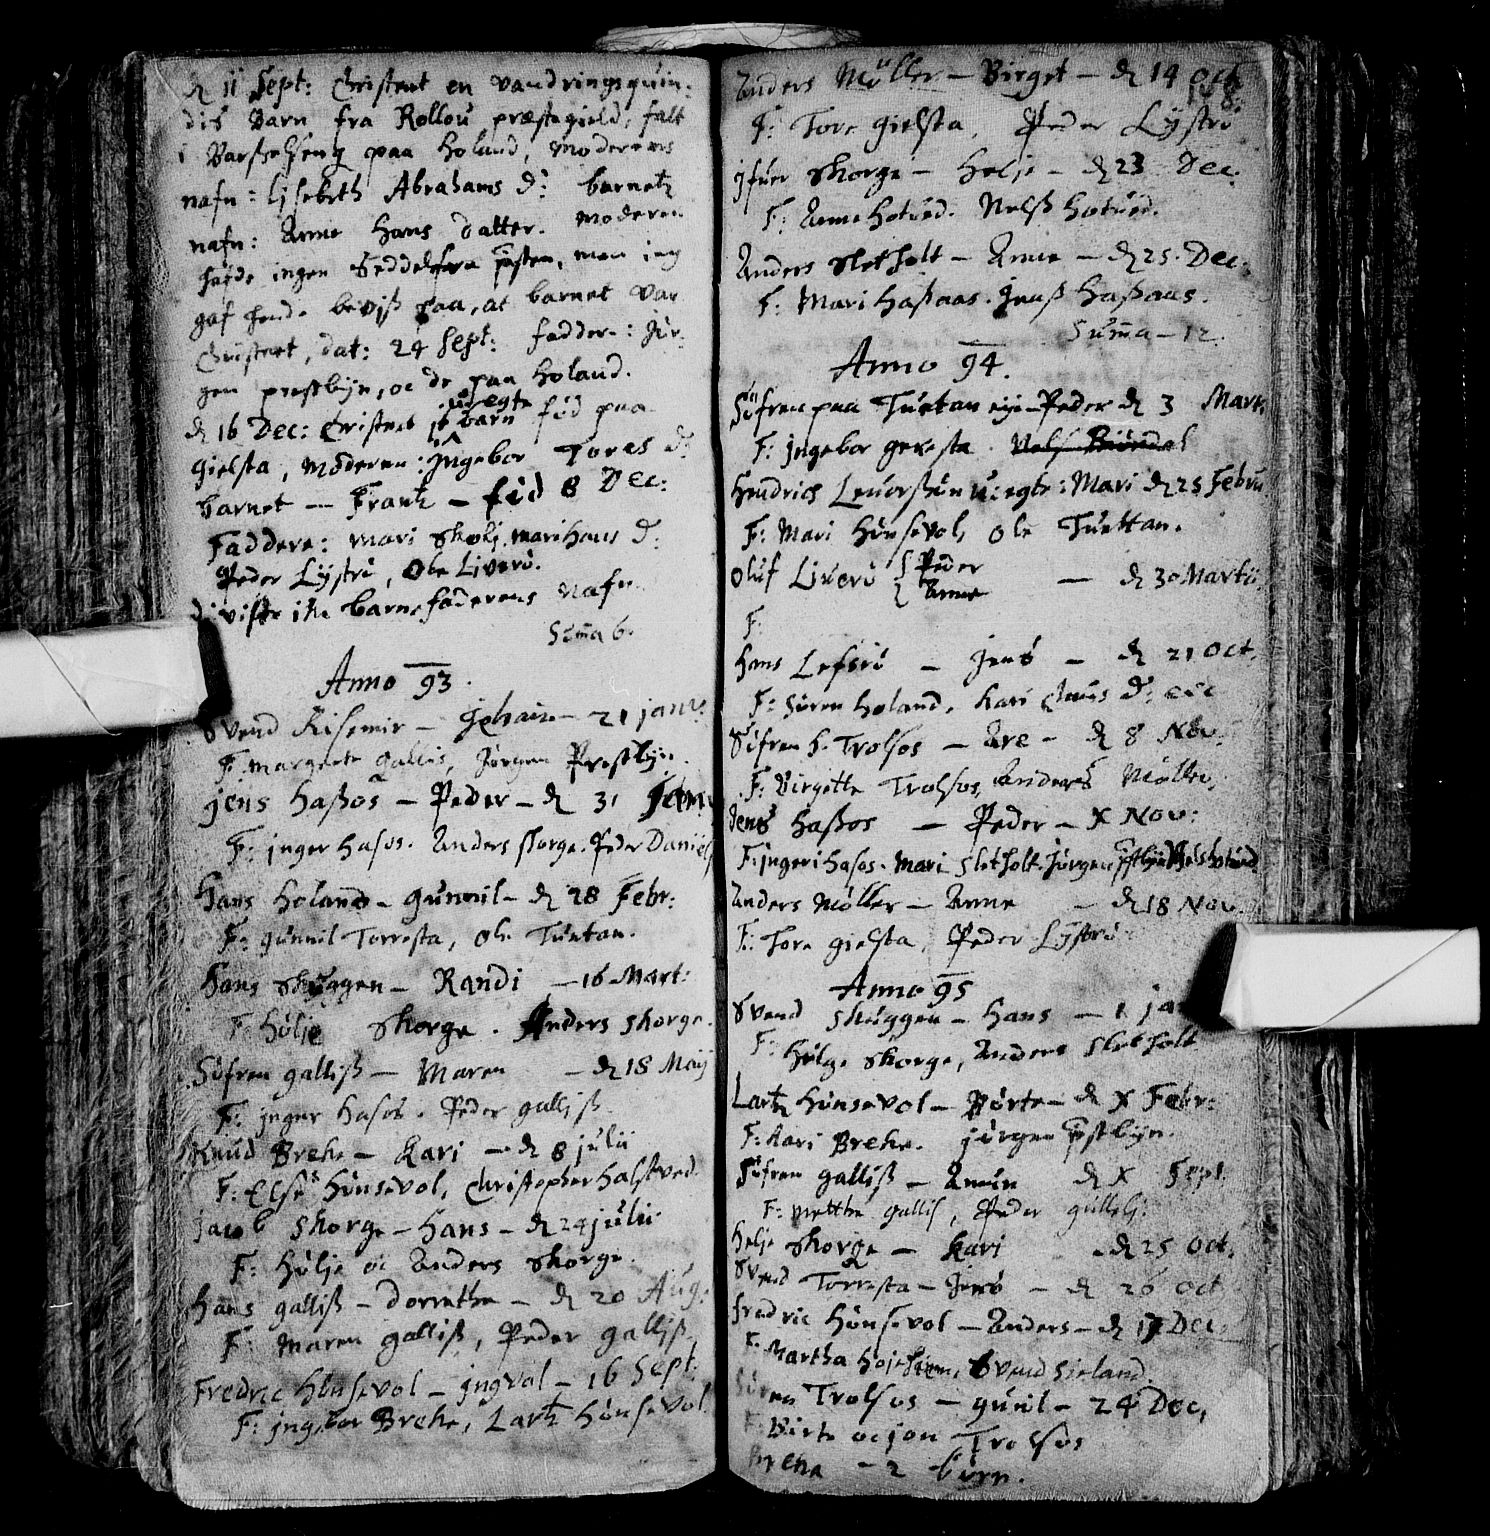 d 11 Sept: Christent en vandringsquin,
dis Barn fra Rollou præstegield, falt
i Barßelseng paa Holand, moderens
nafn: Lisebeth Abrahams d: barnetz
nafn: Anne Hans datter. moderen
hafde ingen Seddel fra psten, men ieg
gaf hende beviß paa, at barnet var
Christnet, dat: 24 Sept: faddere: Jür,
gen prestbyn, oc de paa Holand.
d 16 Dec: Christnet it uegte barn fød paa
Gielsta, Moderen: Ingebor Tores d:
barnet — Frantz — fød 8 Dec:
Faddere: Mari Skoli, mari hans d:
Peder Lÿstrü, Ole Liverü.
di viste ike barnefaderens nafn.
Summa 6.
Anno 93.
Svend Risemir — — 21 janv:
F: margrete gallis, Jürgen Prestbyn.
jens Haßos — Peder — d 31 jan
F: inger hasos. Anders skorge. Peder Daniels
Hans Holand — gunnil — d 28 Febr:
F: gunnil Torresta, Ole Tuetan.
Hans Skuggen — Randi — 16 Mart:
F: Hølje Skorge. Anders Skorge.
Söfren galliß — Maren — d 18 Maij
F: inger hasos. Peder galliß
Knud Breke — Kari — d 8 julii
F: Else Hünsevol, Christopher halstved.
Jacob Skorge — Hans — d 24 julii
F: Hølje oc Anders Skorge.
Hans galliß — dorrethe — d 20 Aug:
F: Maren galliß, Peder galliß
Fredric Hünsevol — ingval — 16 Sept:
F: ingebor Breke, Lartz Hünsevol
Anders Møller — Birget — d 14 Oct
148.
F: Tore gielsta, Peder Lÿstrü
Ifuer Skorge — Helje — d 23 Dec:
F: Anne Hotved. Nelß hotved.
Anders Sletholt — Anne — d 25. Dec:
F: Mari Haßaas. Jenß Haßaas.
Summa — 12.
Anno 94.
Söfren paa Tuetan eje — Peder d 3 Mart:
F: Ingebor geresta.
Hendrich Leuorßün u:egte: Mari d 25 Febru
F: Mari Hünsevol, Ole Tuettan.
Oluf Liverü { Peder
Anne — d 30 Martii
F:
Hans Lefsrü — Jens — d 21 Oct.
F: Sören Holand, Kari Claus d: etc
Söfren h. Trolsos — Are — d 8 Nov:
F: Birgette Trolsos, Anders Møller,
Jens Haßos — Peder — X Nov:
F: ingeri hasos. Mari Sletholt. Jürgen pstbyn Nels hotved.
Anders Møller — Anne — d 18 Nov.
F: Tore gielsta, Peder Lÿstrü
Anno 95
Svend Skuggen — Hans — 1 ja
F: Hølge Skorge, Anders Sletholt
Lartz Hünsevol — Børte — d X Febr:
F: Kari Breke. Jürgen pstbyn.
Söfren galliß — Amün d X Sept.
F: Mette gallis, Peder gullelj.
Helje Skorge — Kari — d 25 Oct.
Svend Torresta — Jens — d 26 Oct
Fredric Hünsevol — Anders — d 17 Dec:
F: Martha Hojehiem, Svend Sieland.
Sören Trolsos — gunil — 24 Dec,
F: Birte oc jon Trolsos
Breke — 2 børn.